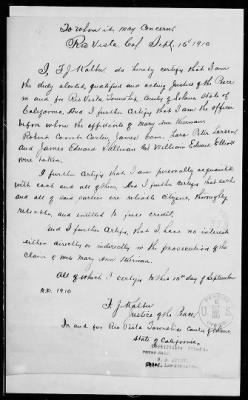 To whom it may Concern
Rio Vista Cal Sept. 15th 1910
I, F J Walter do hereby certify that I am
the duly elected, qualified and acting Justice of the Peace
in and for Rio Vista Township County of Solano State of
California. And I further certify that I am the officer
before whom the affidavits of Mary Ann Sherman
Robert Currie James Peter Larsen
and James Edward Sullivan and William Edward Elliott
were taken.
I further certify that I am personally acquainted
with each and all of them. And I further certify that each
and all of said parties are reliable citizens, thoroughly
reliable, and entitled to full credit;
And I further certify, that I have no interest
either directly or indirectly in the prosecution of the
claim of Mrs Mary Ann Sherman.
All of which I certify to this 15th day of September
A.D. 1910
F. J. Walter
Justice of the Peace
In and for Rio Vista Township County of Solano
State of California.